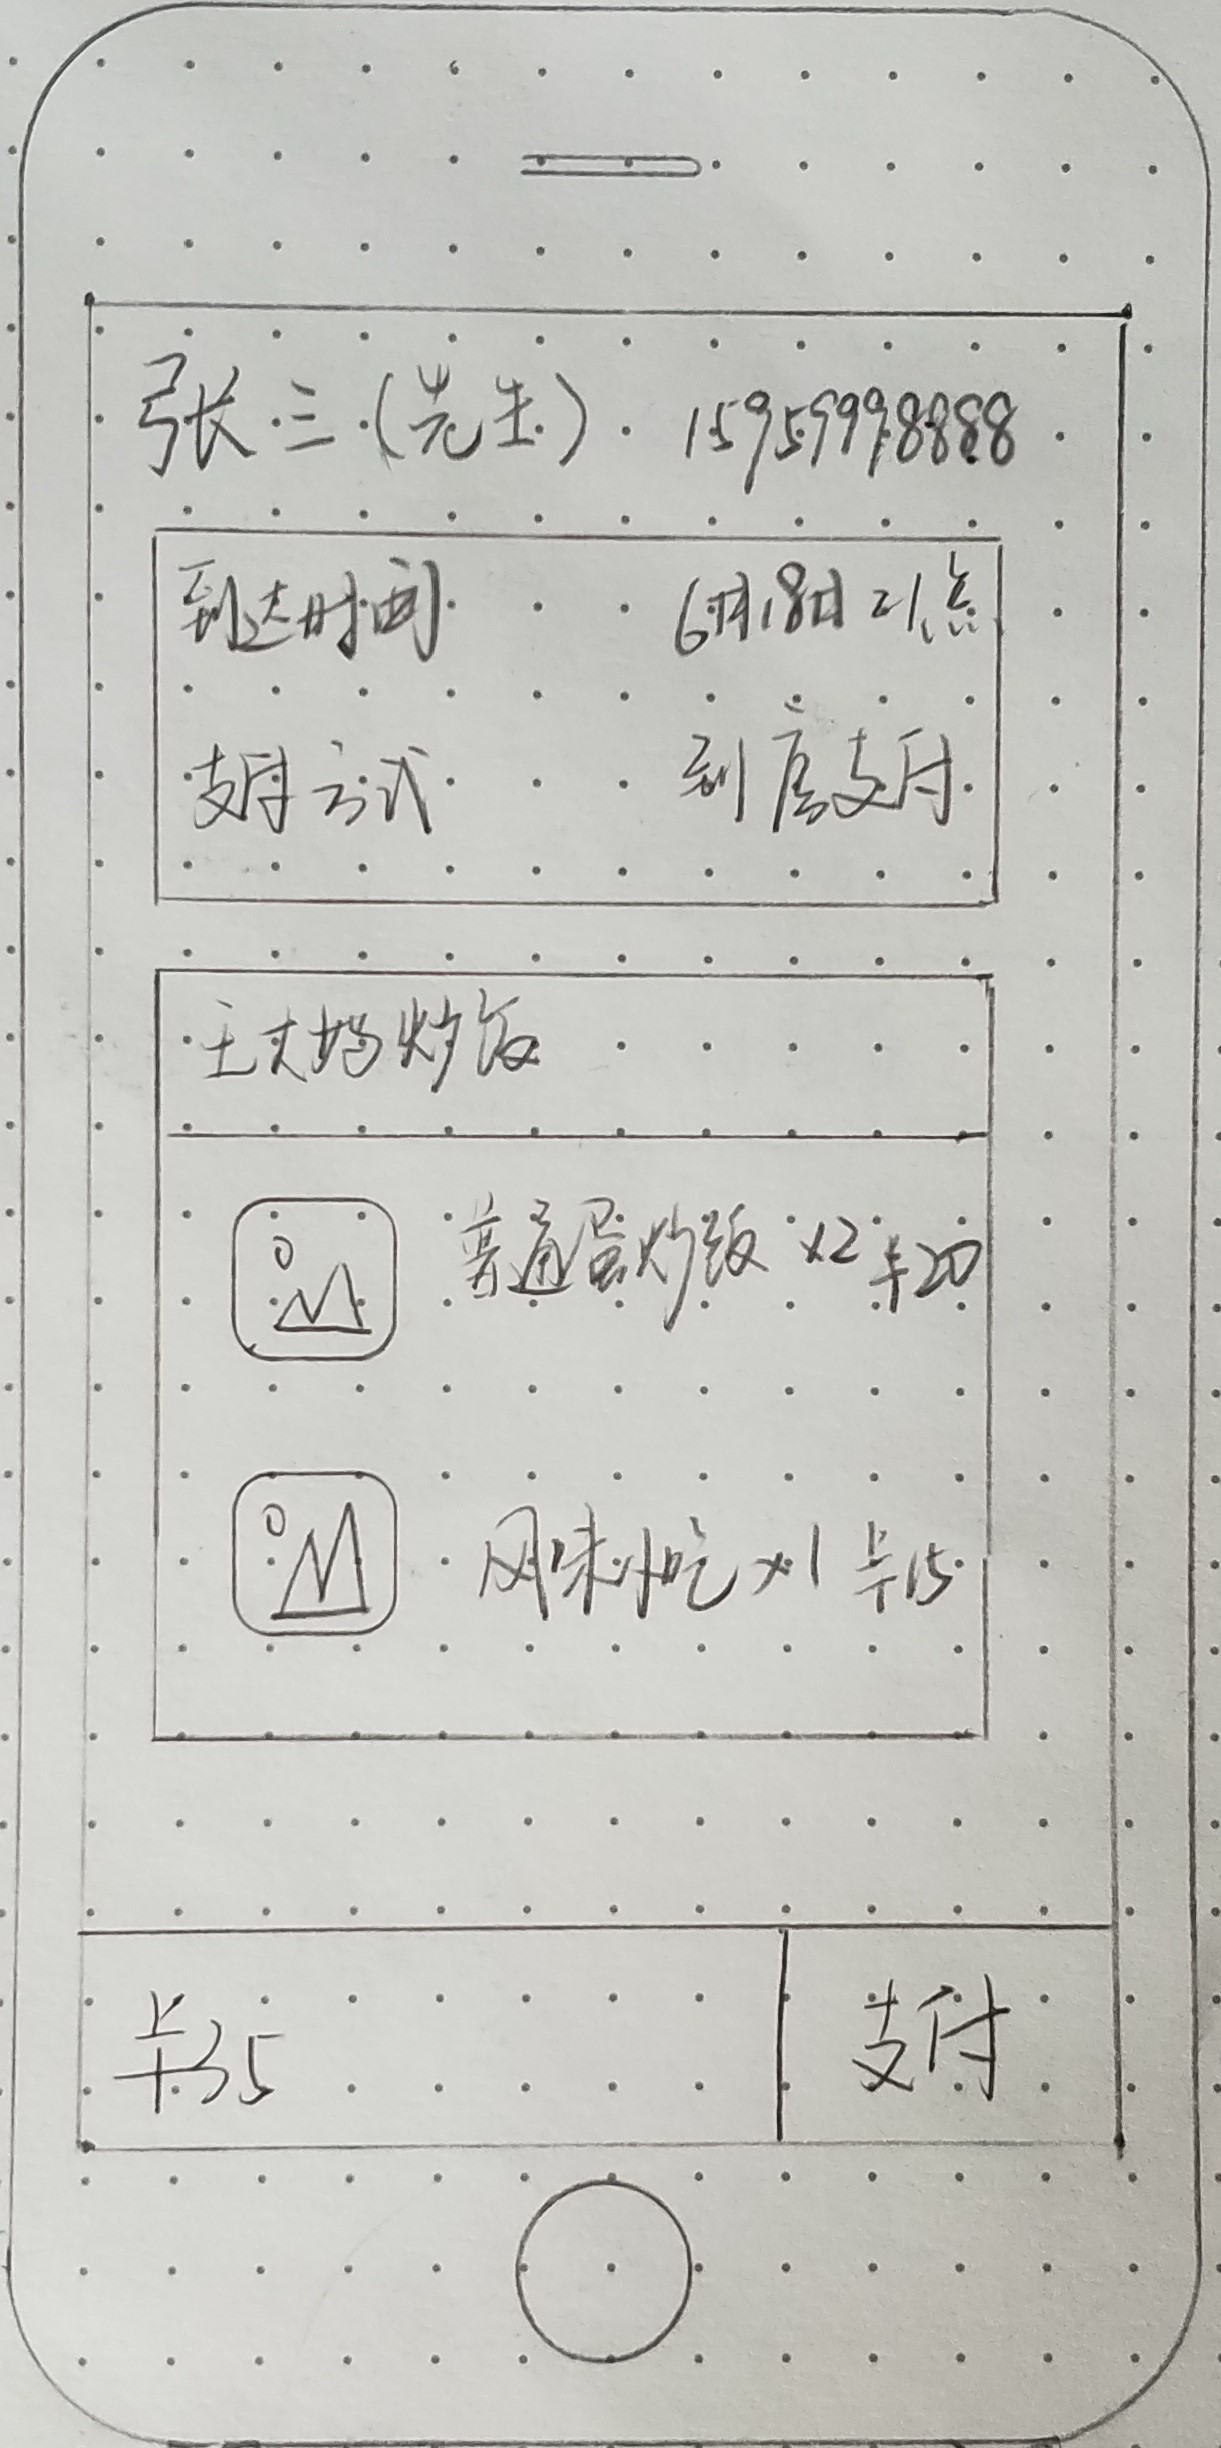 张三(先生) 15959998888
到达时间 6月18日21点
支付方式 到店支付
王大妈炒饭
普通蛋炒饭 x2 ¥20
风味小吃 x1 ¥15
¥35 支付